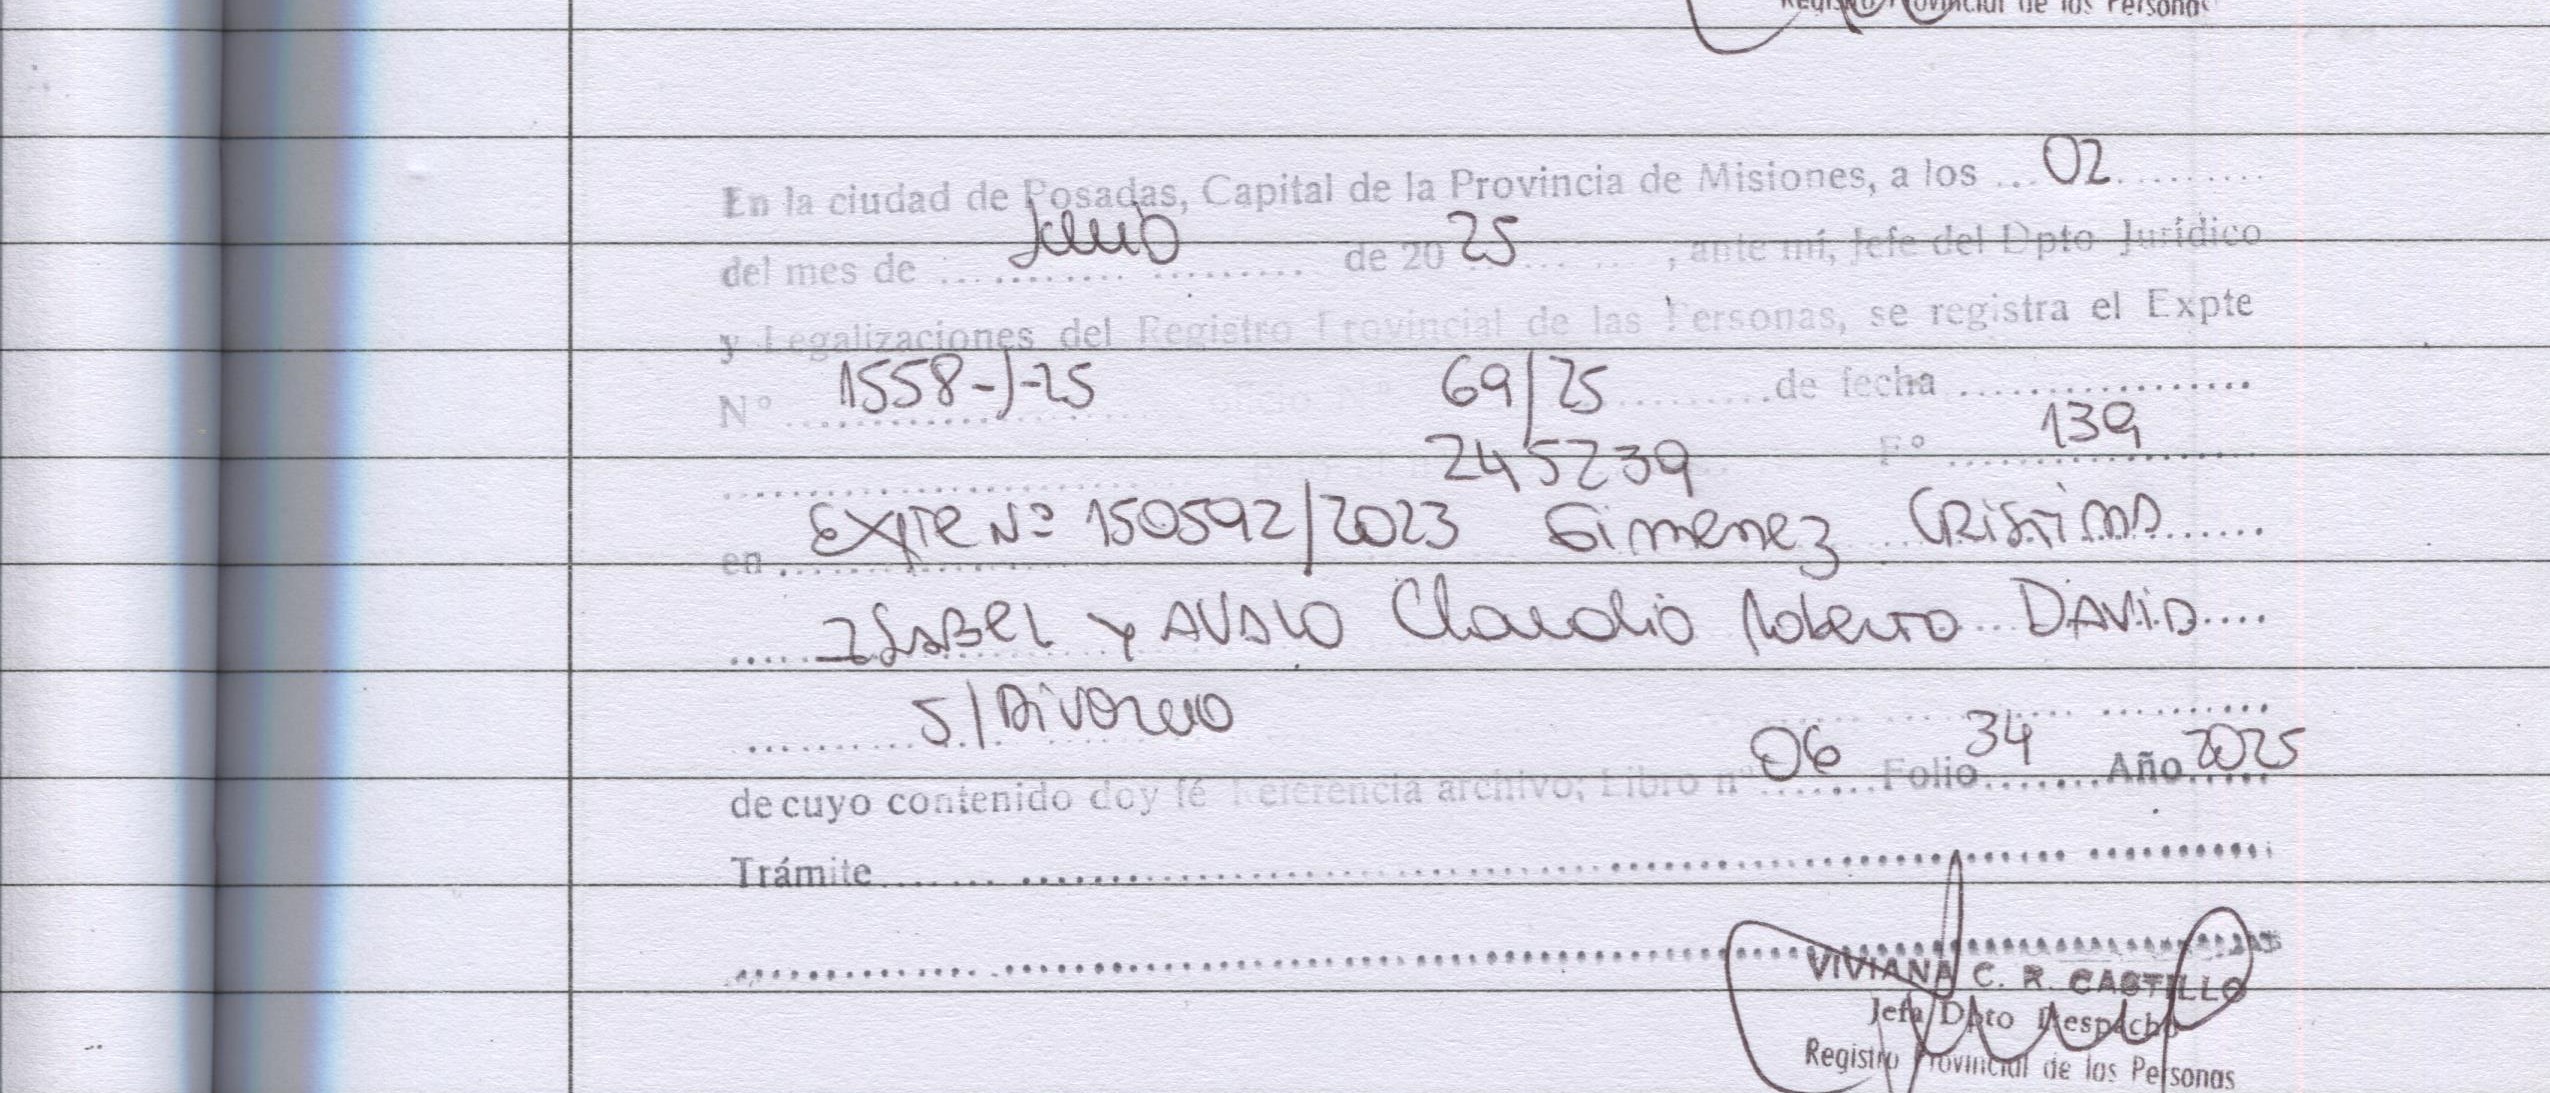 Registro Provincial de las Personas
En la ciudad de Posadas, Capital de la Provincia de Misiones, a los ... 02 .........
del mes de ........... ......... de 20 25 ...... , ante mí, Jefe del Dpto Jurídico
y Legalizaciones del Registro Provincial de las Personas, se registra el Expte
N° 1558-J-25 69/25 ..........de fecha ..................
245239 F° 139
en ... Expte Nº 150592/2023 Gimenez Cristina ......
.... Isabel y Avalo Claudio Roberto David ....
.......... S/Divorcio
de cuyo contenido doy fé Referencia archivo; Libro n° 06 Folio 34 Año 2025
Trámite.......
VIVIANA C. R. CASTILLO
Jefa Dpto Despacho
Registro Provincial de las Personas